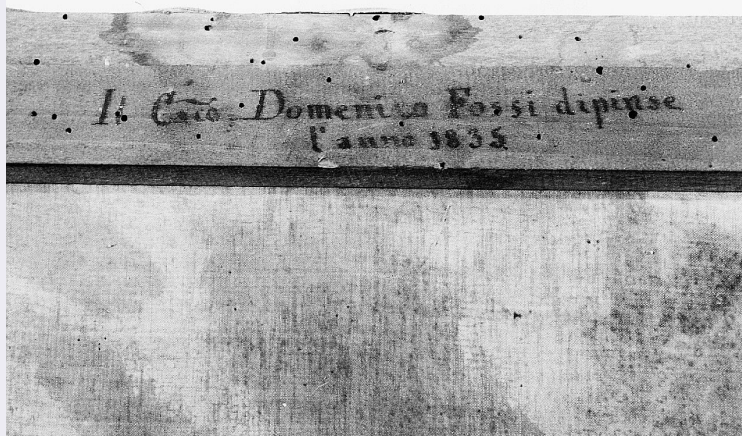 Il Cav. Domenico Fossi dipinse
l'anno 1835